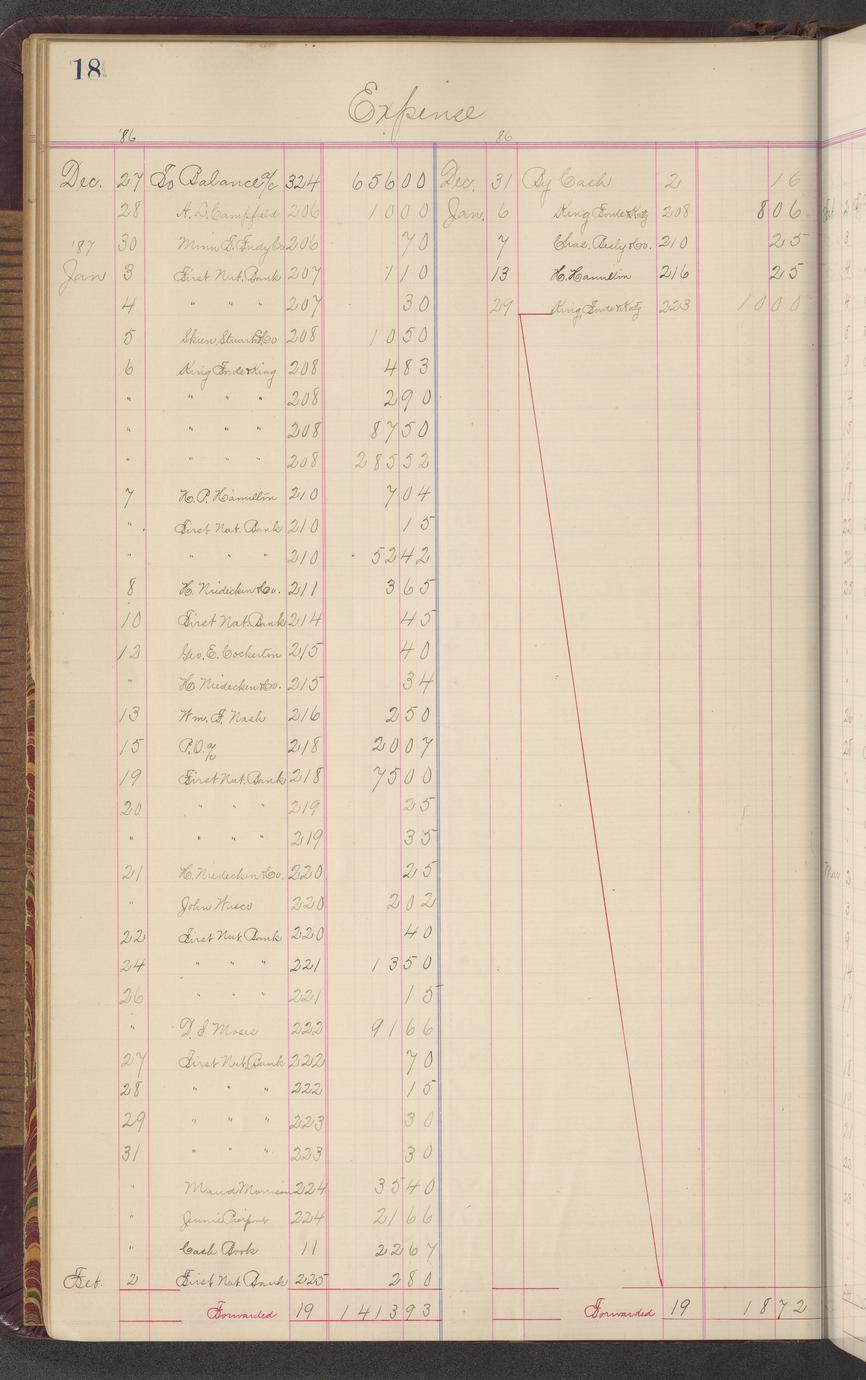 18
Expense
'86
86
Dec. 27 To Balance a/c 324 656 00
28 A. D. Campfield 206 10 00
'87 30 206 70
Jan 3 First Nat. Bank 207 1 10
4 " " " 207 30
5 Skeen Stuart & Co 208 10 50
6 King Fonde & King 208 4 83
" " " " 208 2 90
" " " " 208 87 50
" " " " 208 285 52
7 H. P. Hamilton 210 7 04
" First Nat. Bank 210 15
" " " " 210 52 42
8 H. Niedecken & Co. 211 3 65
10 First Nat. Bank 214 45
12 Geo. E. Cockerton 215 40
" H. Niedecken & Co. 215 34
13 Wm. F. Nash 216 2 50
15 P.O. a/c 218 20 07
19 First Nat. Bank 218 75 00
20 " " " 219 25
" " " " 219 35
21 H. Niedecken & Co. 220 25
" John Wisco 220 2 02
22 First Nat. Bank 220 40
24 " " " 221 13 50
26 " " " 221 15
" D. S. Moses 222 91 66
27 First Nat. Bank 222 70
28 " " " 222 15
29 " " " 223 30
31 " " " 223 30
" Maud Morrison 224 35 40
" Jennie 224 21 66
" Cash Book 11 22 67
Feb. 2 First Nat. Bank 225 2 80
Forwarded 19 1413 93
Dec. 31 By Cash 2 16
Jan. 6 King Fonde & Katz 208 8 06
7 Chas. Besly & Co. 210 25
13 H. Hamilton 216 25
29 King, Fonde & Katz 223 10 00
Forwarded 19 18 72